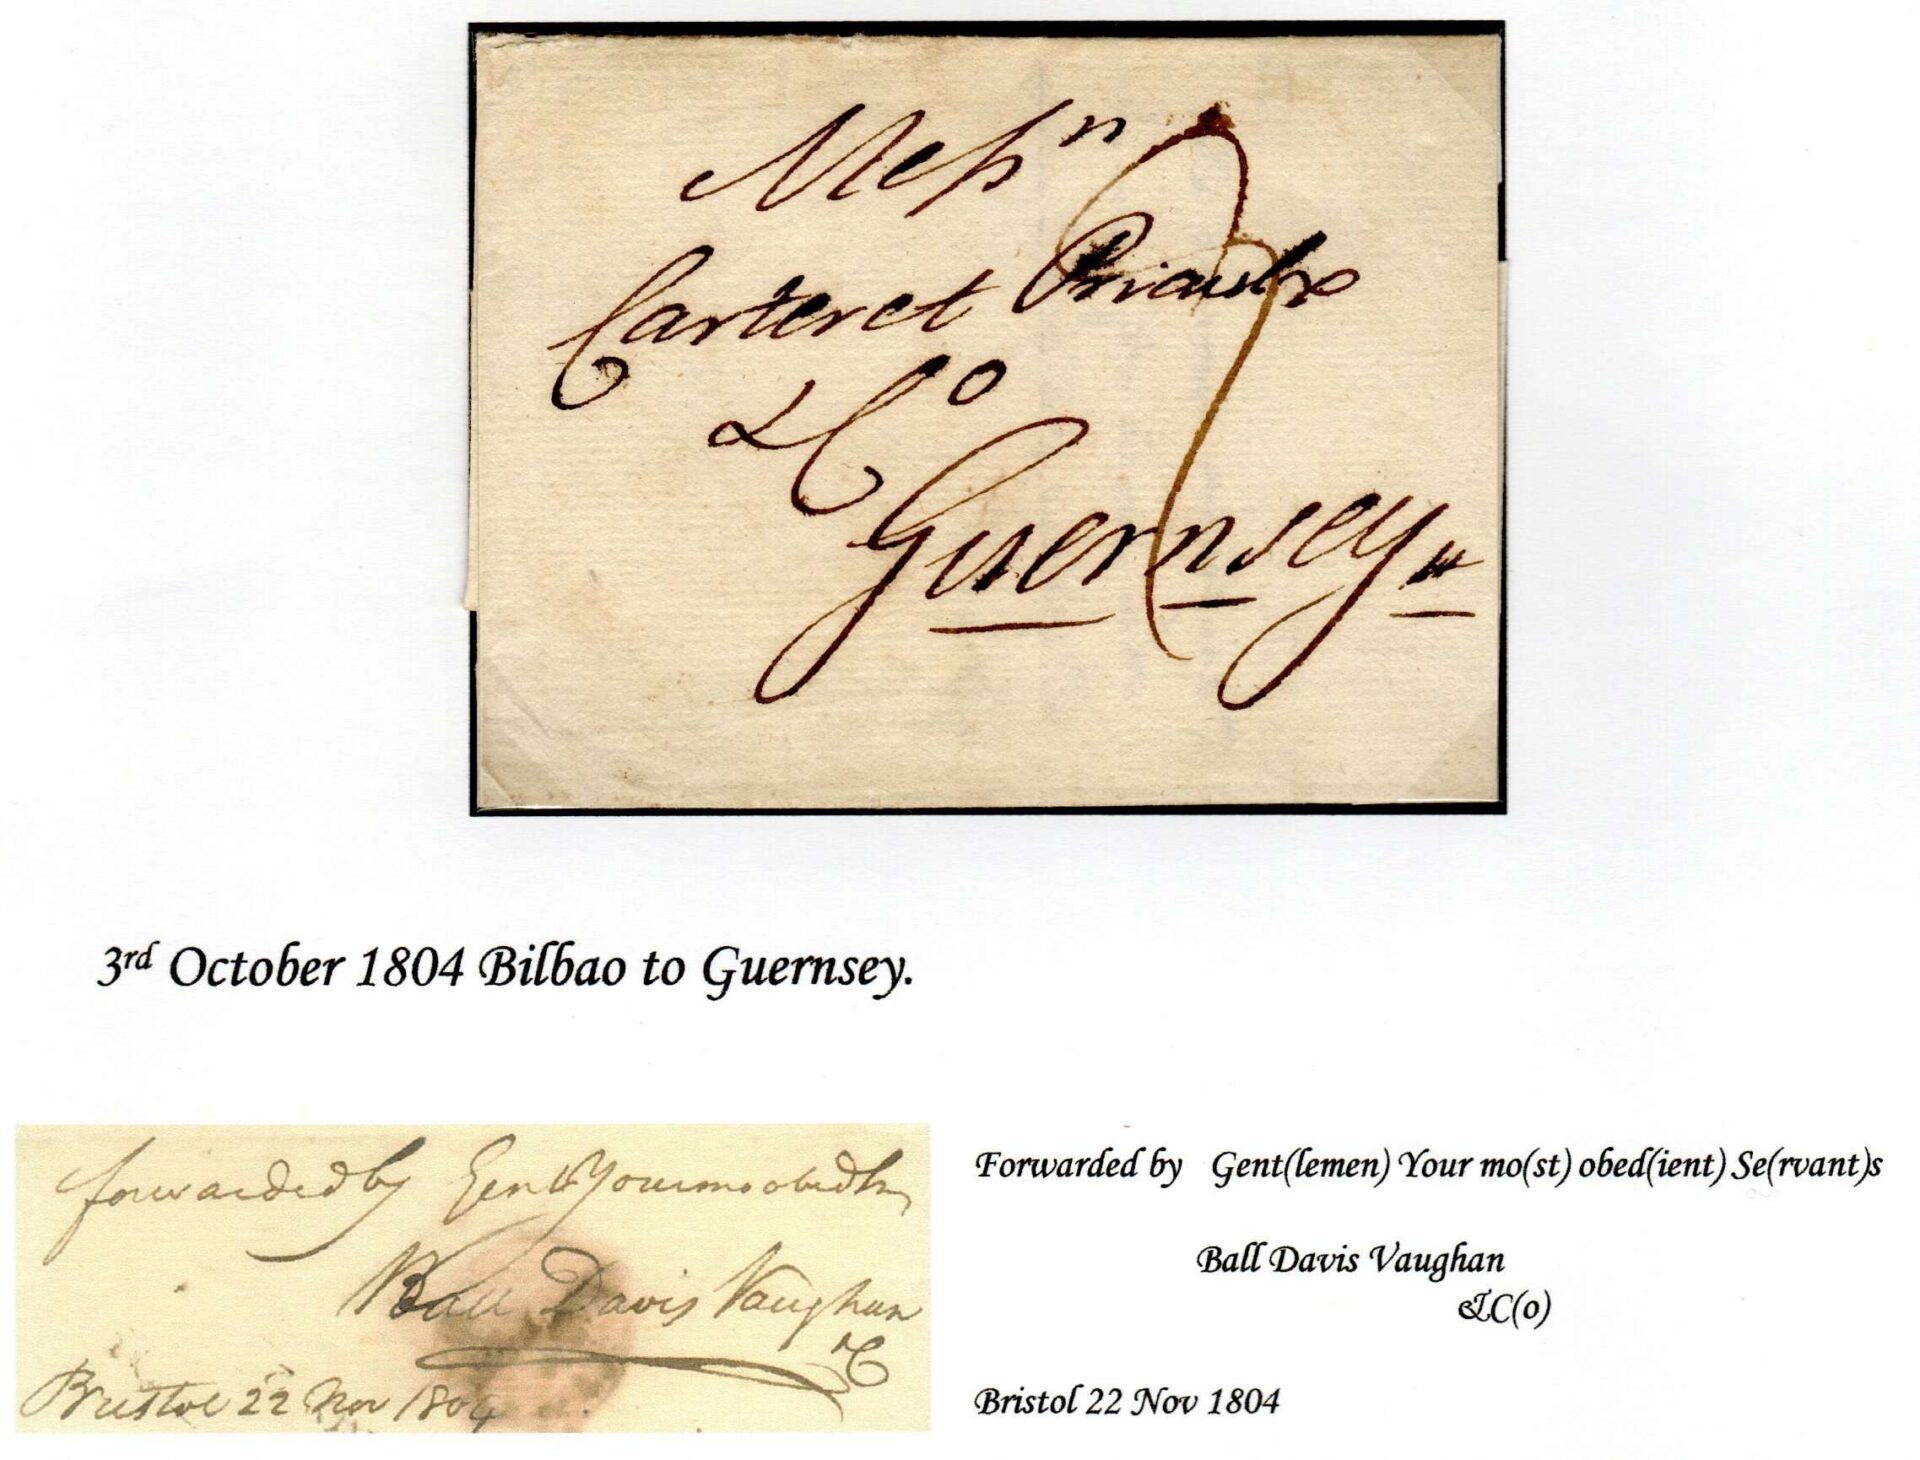 Messrs
Carteret Priaulx
& Co
Guernsey
3rd October 1804 Bilbao to Guernsey.
forwarded by Gent Your mo obed Ss
Ball Davis Vaughan
& C
Bristol 22 Nov 1804
Forwarded by Gent(lemen) Your mo(st) obed(ient) Se(rvant)s
Ball Davis Vaughan
&C(o)
Bristol 22 Nov 1804